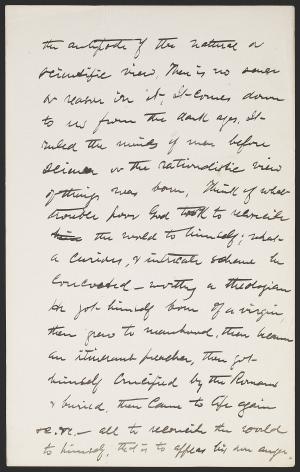 the antipode of the natural or
scientific view. There is no sense
or reason in it, it comes down
to us from the dark ages. It
ruled the minds of men before
science or the rationalistic view
of things was born. Think of what
trouble poor God took to reconcile
the world to himself; what
a curious, & intricate scheme he
concocted – worthy a theologian
He got himself born of a virgin,
then grew to manhood, then became
an itinerant preacher, then got
himself crucified by the Romans
& buried, then came to life again
&c. &c. – all to reconcile the world
to himself, that is to appease his own anger.